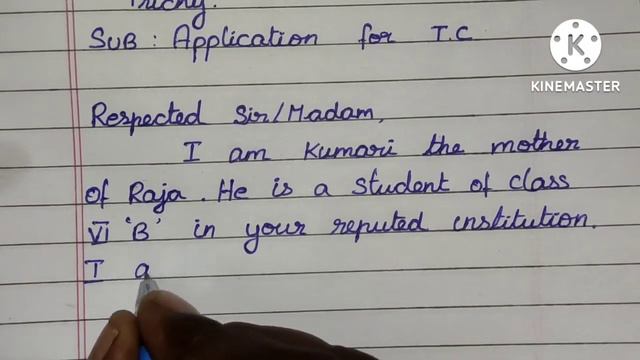 Trichy.
SUB : Application for T.C
K
KINEMASTER
Respected Sir/Madam,
I am Kumari the mother
of Raja. He is a student of class
VI 'B' in your reputed institution.
I a